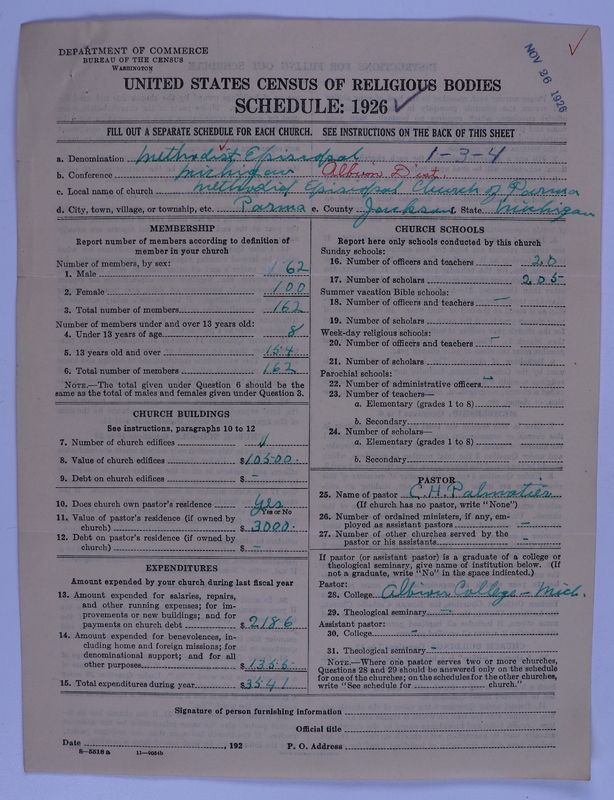 DEPARTMENT OF COMMERCE
BUREAU OF THE CENSUS
WASHINGTON
NOV 26 1926
UNITED STATES CENSUS OF RELIGIOUS BODIES
SCHEDULE: 1926
FILL OUT A SEPARATE SCHEDULE FOR EACH CHURCH. SEE INSTRUCTIONS ON THE BACK OF THIS SHEET
a. Denomination Methodist Episcopal 1-3-4
b. Conference Michigan Albion Dist
c. Local name of church Methodist Episcopal Church of Parma
d. City, town, village, or township, etc. Parma e. County Jackson State Michigan
MEMBERSHIP
Report number of members according to definition of
member in your church
Number of members, by sex:
1. Male 62
2. Female 100
3. Total number of members 162
Number of members under and over 13 years old:
4. Under 13 years of age 8
5. 13 years old and over 154
6. Total number of members 162
NOTE.—The total given under Question 6 should be the
same as the total of males and females given under Question 3.
CHURCH BUILDINGS
See instructions, paragraphs 10 to 12
7. Number of church edifices 1
8. Value of church edifices $10500.
9. Debt on church edifices $ –
10. Does church own pastor's residence Yes
Yes or No
11. Value of pastor's residence (if owned by
church) $3000.
12. Debt on pastor's residence (if owned by
church) $ –
EXPENDITURES
Amount expended by your church during last fiscal year
13. Amount expended for salaries, repairs,
and other running expenses; for im-
provements or new buildings; and for
payments on church debt $2186
14. Amount expended for benevolences, in-
cluding home and foreign missions; for
denominational support; and for all
other purposes $1355
15. Total expenditures during year $3541
CHURCH SCHOOLS
Report here only schools conducted by this church
Sunday schools:
16. Number of officers and teachers 20
17. Number of scholars 205
Summer vacation Bible schools:
18. Number of officers and teachers –
19. Number of scholars
Week-day religious schools:
20. Number of officers and teachers –
21. Number of scholars
Parochial schools:
22. Number of administrative officers –
23. Number of teachers—
a. Elementary (grades 1 to 8)
b. Secondary
24. Number of scholars—
a. Elementary (grades 1 to 8)
b. Secondary
PASTOR
25. Name of pastor C. H. Palmatier
(If church has no pastor, write "None")
26. Number of ordained ministers, if any, em-
ployed as assistant pastors –
27. Number of other churches served by the
pastor or his assistants –
If pastor (or assistant pastor) is a graduate of a college or
theological seminary, give name of institution below. (If
not a graduate, write "No" in the space indicated.)
Pastor:
28. College Albion College – Mich.
29. Theological seminary –
Assistant pastor:
30. College –
31. Theological seminary –
NOTE.—Where one pastor serves two or more churches,
Questions 28 and 29 should be answered only on the schedule
for one of the churches; on the schedules for the other churches,
write "See schedule for church."
Signature of person furnishing information
Official title
Date , 192 P. O. Address
8—5518a 11—9034b